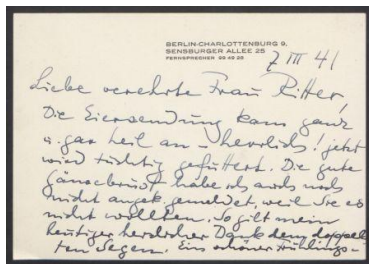 BERLIN-CHARLOTTENBURG 9,
SENSBURGER ALLEE 25
FERNSPRECHER 99 49 25
7 III 41
Liebe verehrte Frau Ritter,
Die Eiersendung kam ganz
u. gar heil an – herrlich! jetzt
wird tüchtig gefuttert. Die gute
Gänsebrust habe ich auch noch
nicht gemeldet, weil Sie es
nicht wollten. So gilt mein
heutiger herzlicher Dank dem doppel-
ten Segen. Ein schöner Frühlings-